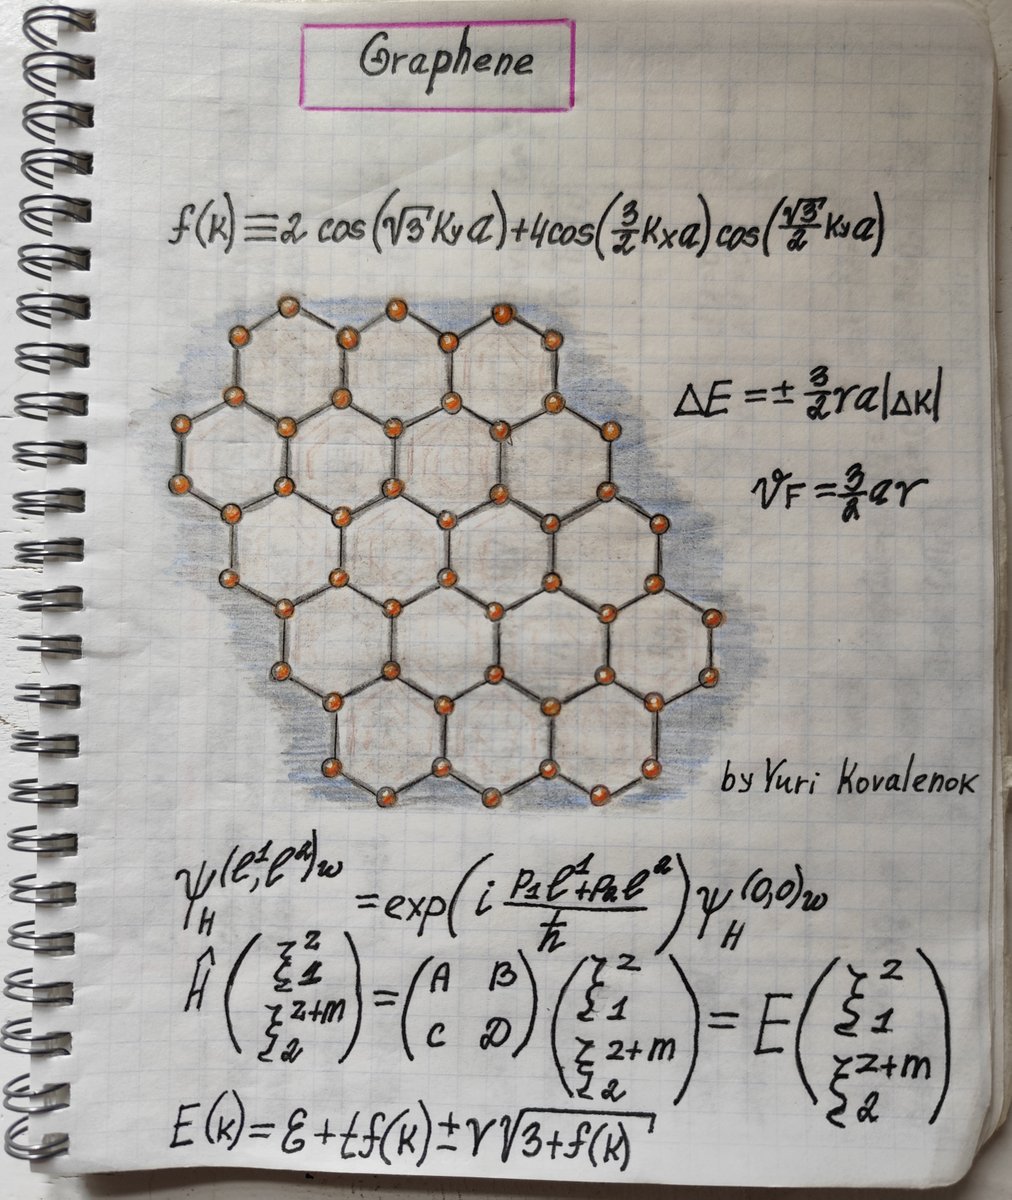 Graphene
f(k) ≡ 2 cos(√3 kya) + 4cos(3/2 kxa) cos(√3/2 kya)
ΔE = ± 3/2 γa|Δk|
vF = 3/2 aγ
by Yuri Kovalenok
ψH^(ℓ^1,ℓ^2)w = exp(i (P1ℓ^1+P2ℓ^2)/ħ) ψH^(0,0)w
Ĥ (ξ^z_1 ξ^z+m_2) = (A B C D) (ξ^z_1 ξ^z+m_2) = E (ξ^z_1 ξ^z+m_2)
E(k) = ε + tf(k) ± γ√3+f(k)